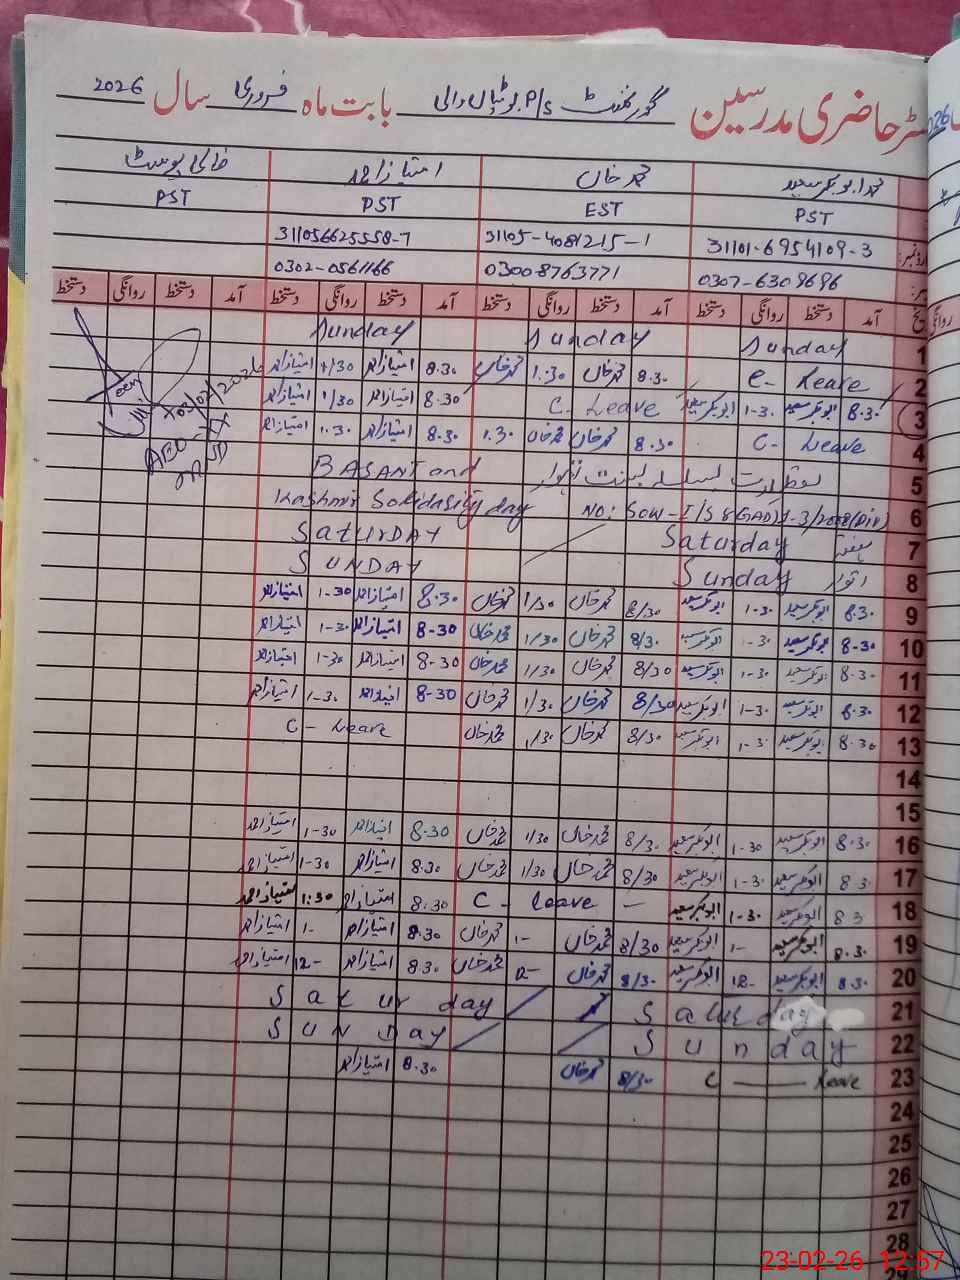 رجسٹر حاضری مدرسین گورنمنٹ P/s بوٹیاں والی بابت ماہ فروری سال 2026
محمد ابوبکر سعید محمد خان امتیاز احمد خالی پوسٹ
PST EST PST PST
31101-6954109-3 31105-4081215-1 311056625558-7
0307-6309696 03008763771 0302-0561166
آمد دستخط روانگی دستخط آمد دستخط روانگی دستخط آمد دستخط روانگی دستخط آمد دستخط روانگی دستخط
1 Sunday Sunday Sunday
2 C- Leave 8.30 محمد خان 1.30 محمد خان 8.30 امتیاز احمد 1/30 امتیاز احمد
3 8.30 ابوبکر سعید 1-30 ابوبکر سعید C- Leave 8.30 امتیاز احمد 1/30 امتیاز احمد
4 C- Leave 8.30 محمد خان محمد خان 1.30 8.30 امتیاز احمد 1.30 امتیاز احمد
AEO
5 بسلسلہ بسنت تہوار BASANT and
6 Kashmir Solidarity day
7 ہفتہ Saturday SATURDAY
8 اتوار Sunday SUNDAY
9 8.30 ابوبکر سعید 1-30 ابوبکر سعید 8/30 محمد خان 1/30 محمد خان 8.30 امتیاز احمد 1-30 امتیاز احمد
10 8-30 ابوبکر سعید 1-30 ابوبکر سعید 8/30 محمد خان 1/30 محمد خان 8-30 امتیاز احمد 1-30 امتیاز احمد
11 8-30 ابوبکر سعید 1-30 ابوبکر سعید 8/30 محمد خان 1/30 محمد خان 8-30 امتیاز احمد 1-30 امتیاز احمد
12 8.30 ابوبکر سعید 1-30 ابوبکر سعید 8/30 محمد خان 1/30 محمد خان 8-30 امتیاز احمد 1-30 امتیاز احمد
13 8.30 ابوبکر سعید 1-3 ابوبکر سعید 8/30 محمد خان 1/30 محمد خان C- Leave
14
15
16 8.30 ابوبکر سعید 1-30 ابوبکر سعید 8/30 محمد خان 1/30 محمد خان 8-30 امتیاز احمد 1-30 امتیاز احمد
17 8 3 ابوبکر سعید 1-30 ابوبکر سعید 8/30 محمد خان 1/30 محمد خان 8.30 امتیاز احمد 1-30 امتیاز احمد
18 8 3 ابوبکر سعید 1-30 ابوبکر سعید C- Leave - 8:30 امتیاز احمد 1:30 امتیاز احمد
19 8.30 ابوبکر سعید 1- ابوبکر سعید 8/30 محمد خان 1- محمد خان 8.30 امتیاز احمد 1- امتیاز احمد
20 8.30 ابوبکر سعید 12- ابوبکر سعید 8/30 محمد خان 12- محمد خان 8.30 امتیاز احمد 12- امتیاز احمد
21 Saturday Saturday
22 Sunday SUNDAY
23 C Leave 8/30 محمد خان 8.30 امتیاز احمد
24
25
26
27
28
23-02-26 12:57